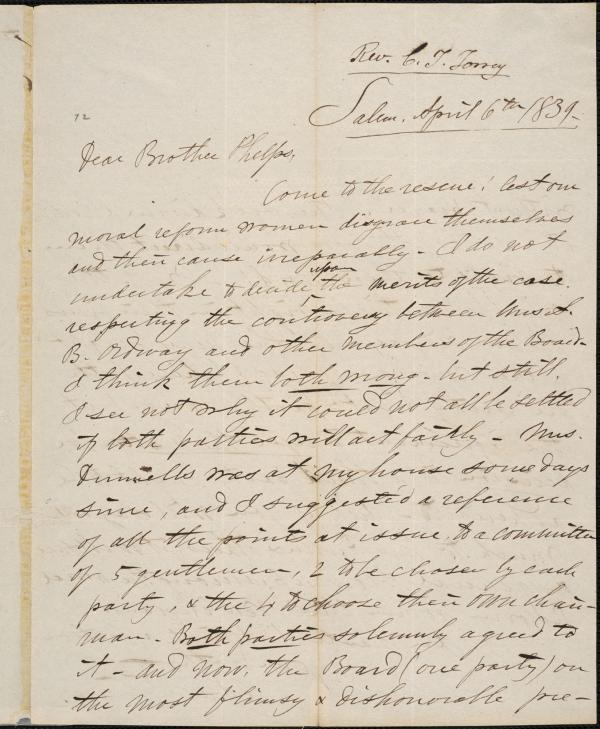 Rev. C. T. Torrey
Salem, April 6th 1839-
72
Dear Brother Phelps,
Come to the rescue! lest our
moral reform women disgrace themselves
and their cause irreparably - I do not
undertake to decide upon the merits of the case.
respecting the controversy between Miss A.
B. Ordway and other members of the Board-
I think them both wrong - but still,
I see not why it could not all be settled
if both parties will act fairly - Mrs.
was at my house some days
since, and I suggested a reference
of all the points at issue to a committee
of 5 gentlemen, 2 to be chosen by each
party, & the 4 to choose their own chair-
man - Both parties solemnly agreed to
it - and now, the Board (one party) on
the most flimsy & dishonorable pre-